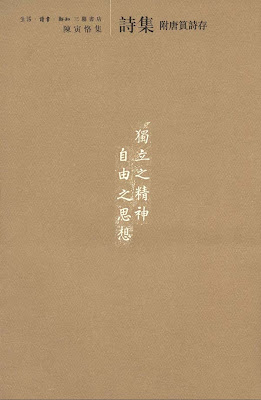 生活·讀書·新知 三聯書店
陳寅恪集
詩集 附唐篔詩存
獨立之精神
自由之思想